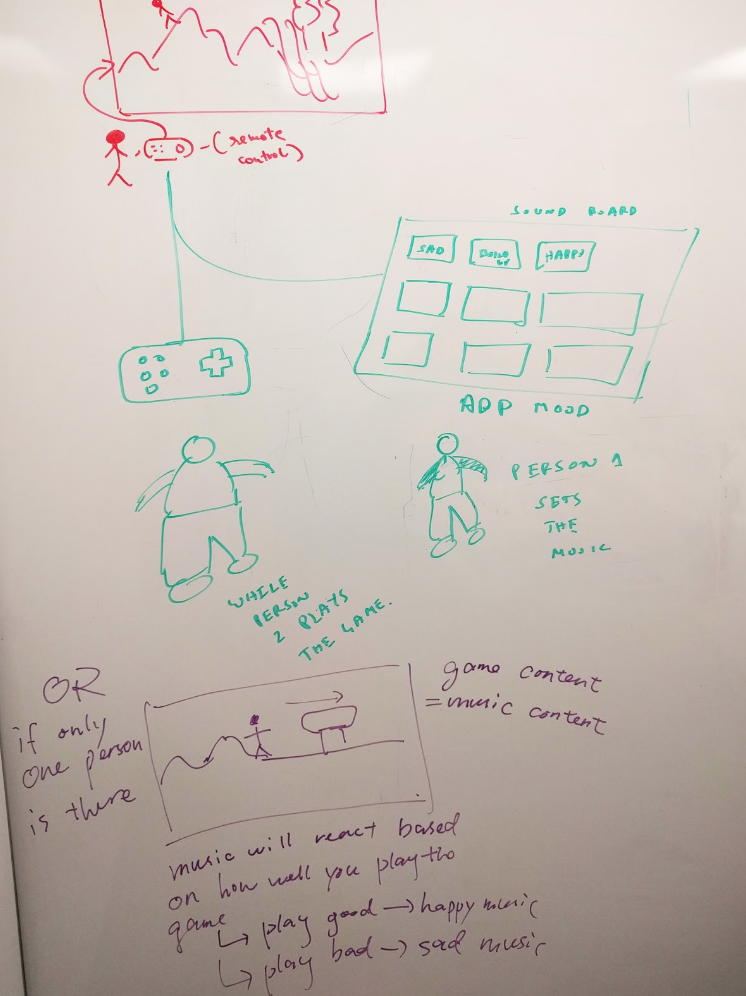 (remote
control)
SOUND BOARD
SAD
HAPPY
ADD MOOD
PERSON 1
SETS
THE
MUSIC
WHILE
PERSON
2 PLAYS
THE GAME.
OR
if only
one person
is there
game content
= music content
music will react based
on how well you play the
game
↳ play good → happy music
↳ play bad → sad music